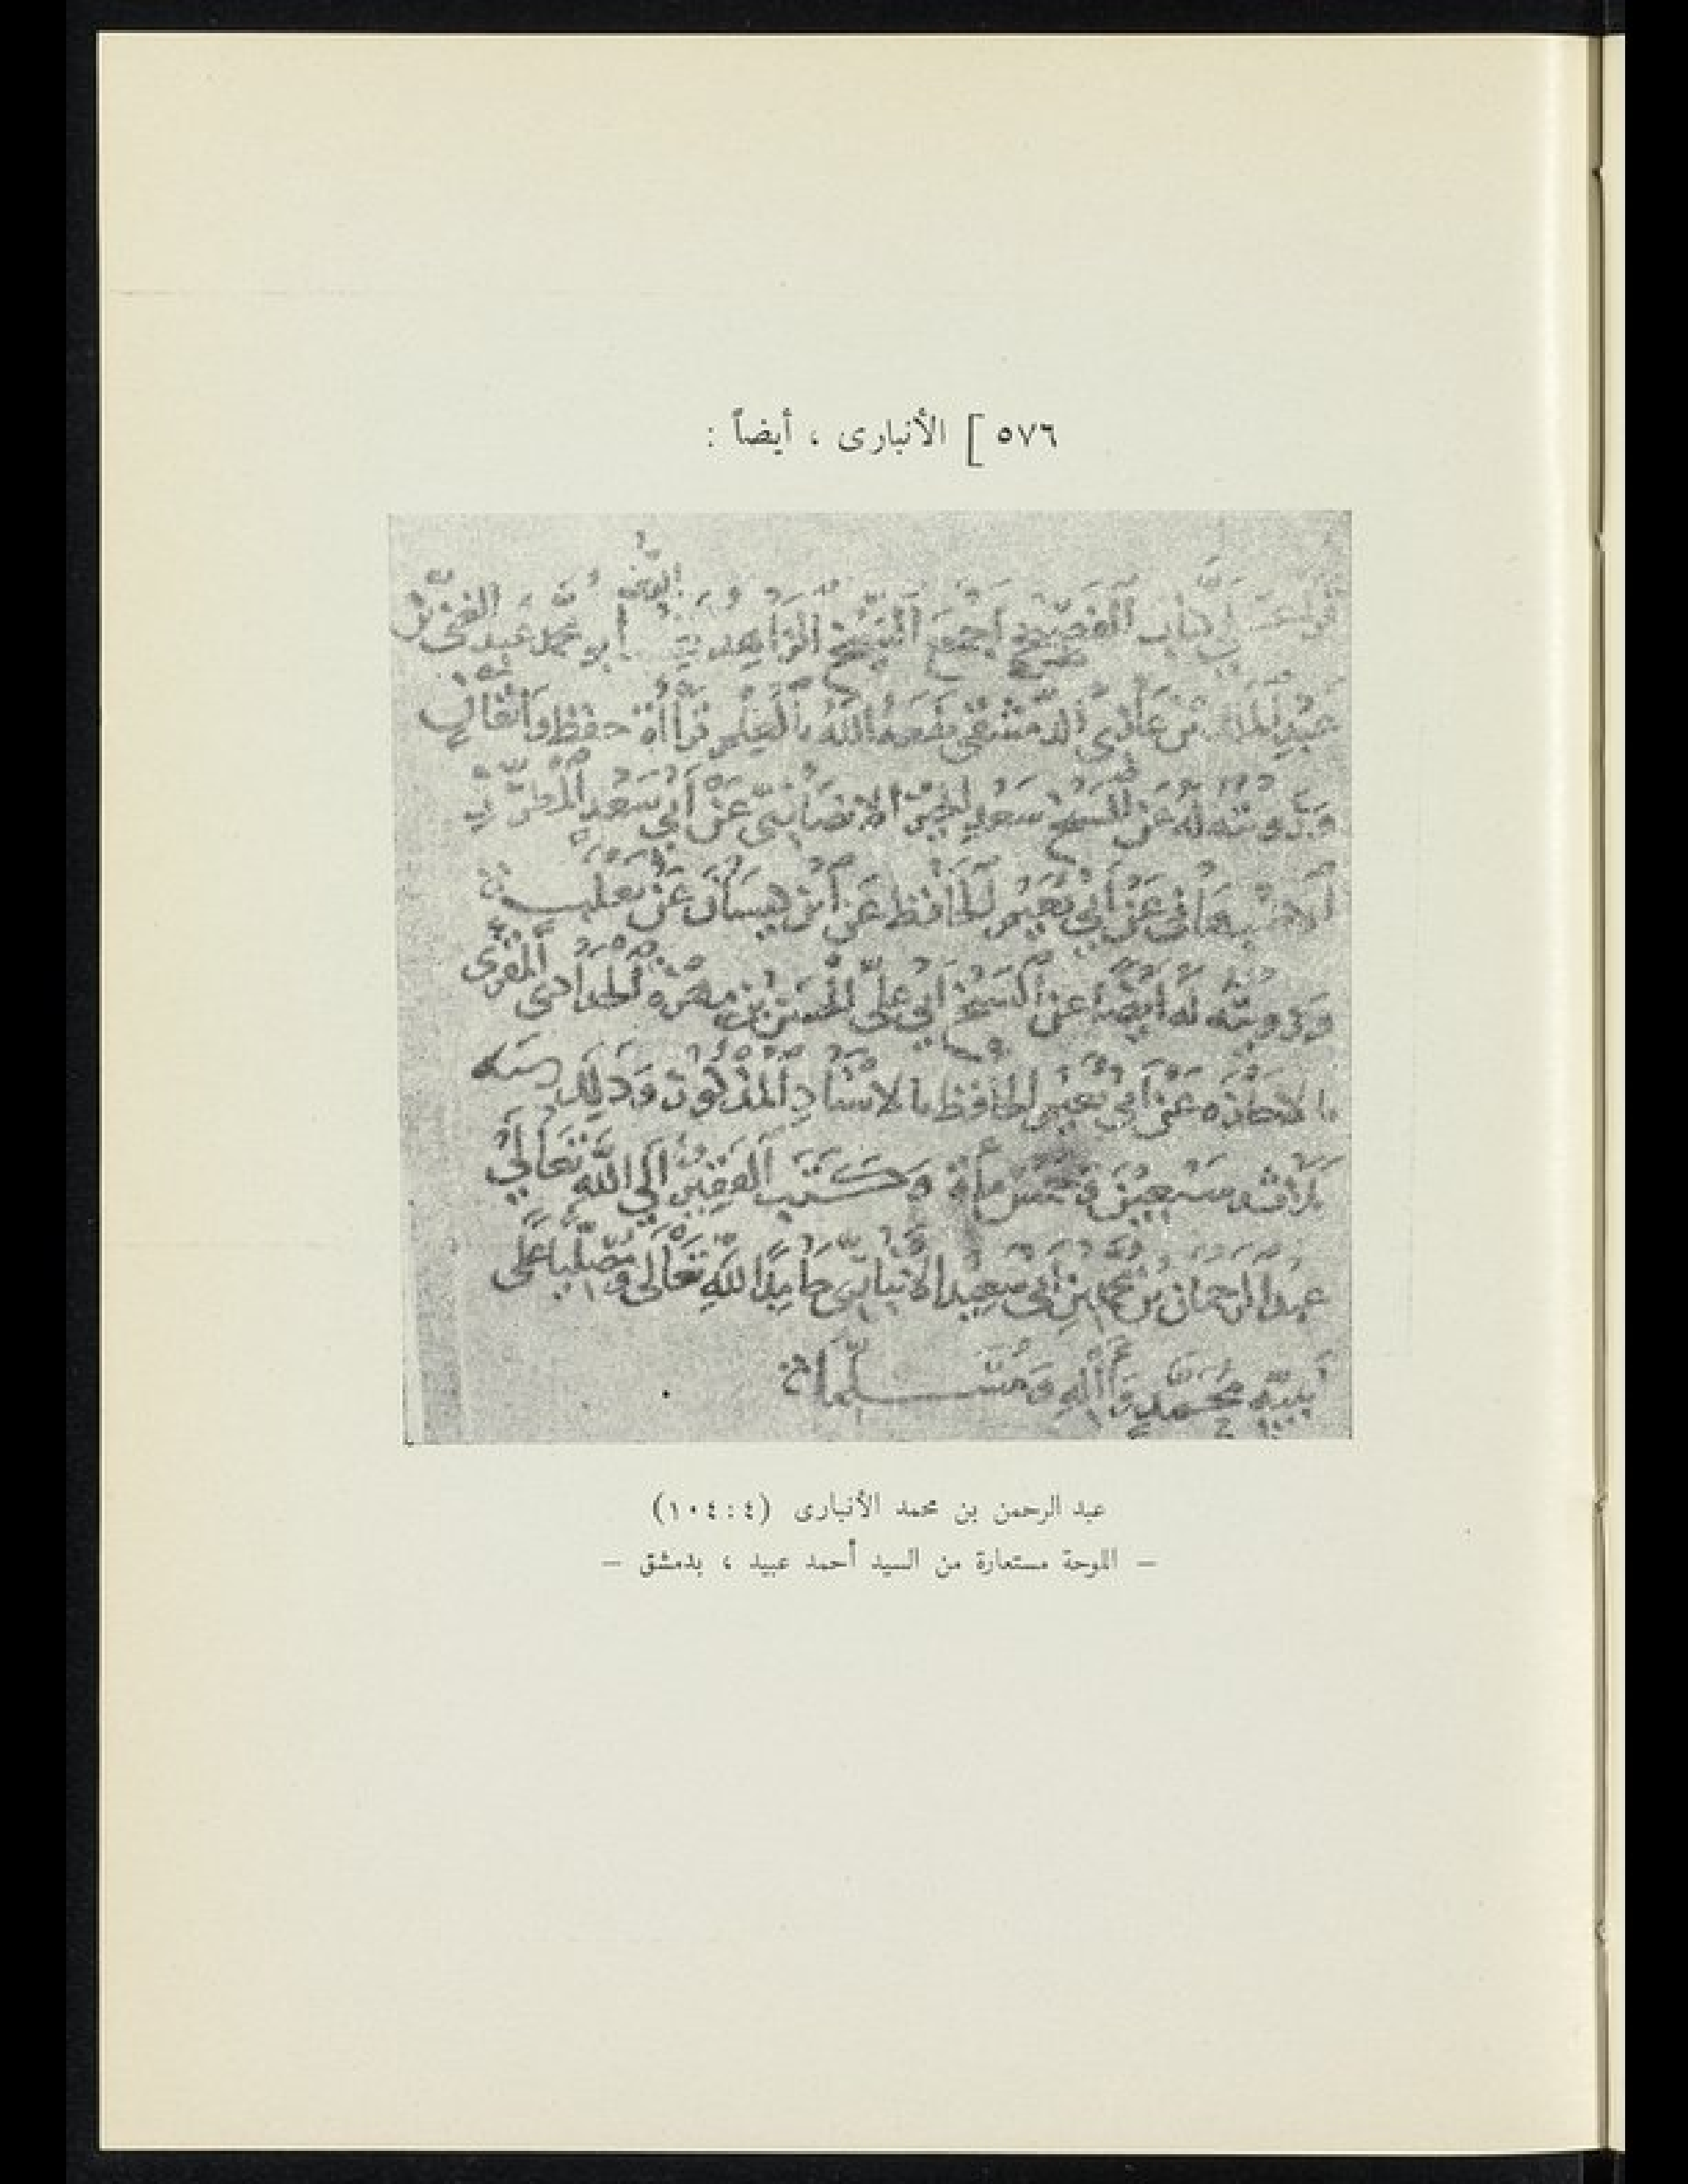 ٥٧٦ [ الأنبارى ، أيضاً :
كتاب الفصيح أجمع الشيخ الزاهد أبو محمد عبد الغنى بن
بن الدمشقى نفعه الله بالعلم قراءة حفظ واتقان
ورويته له عن الشيخ سعد الخير الانصارى عن أبى سعد المطرز
الاصبهانى عن أبى نعيم الحافظ عن ابن كيسان عن ثعلب
ورويته له أيضا عن الشيخ أبى على الحسن بن الحداد المقرى
عن أبى نعيم الحافظ بالاسناد المذكور وذلك سنة
وسبعين وخمس مأة وكتب الفقير الى الله تعالى
عبد الرحمان بن محمد بن أبى سعيد الانبارى حامدا لله تعالى ومصليا على
نبيه محمد وآله ومسلما
عبد الرحمن بن محمد الأنبارى (٤ : ١٠٤)
– اللوحة مستعارة من السيد أحمد عبيد ، بدمشق –